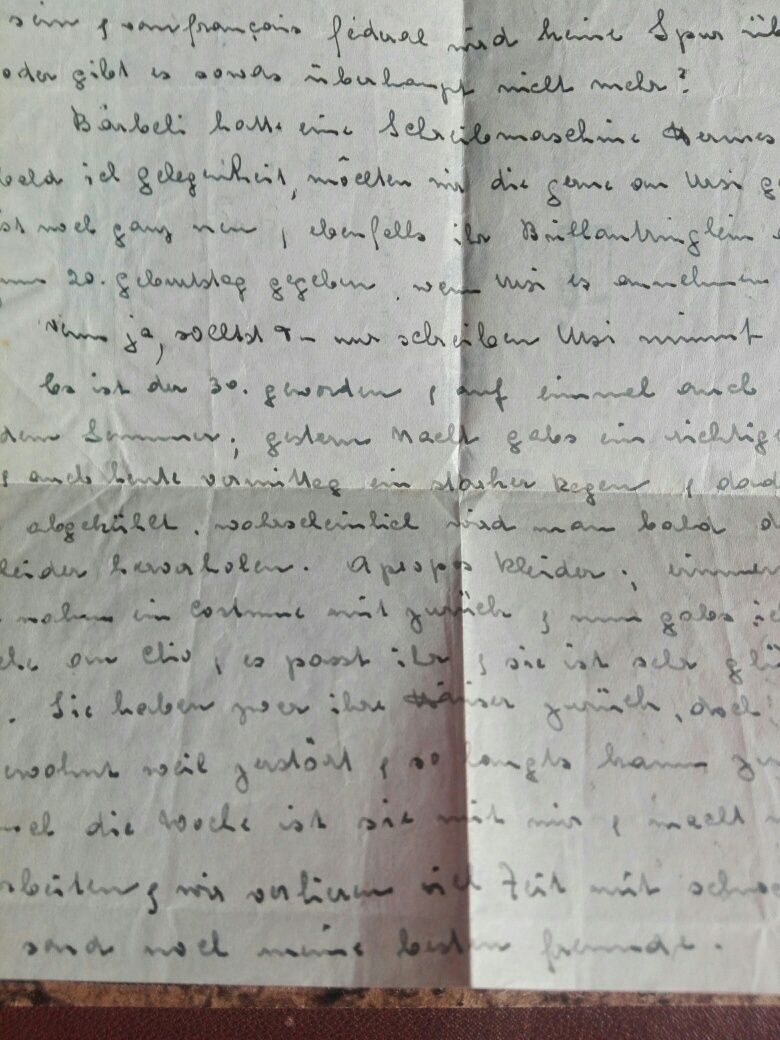 sein & vom français féderal wird keine Spur üb
oder gibt es sowas überhaupt nicht mehr?
Bärbeli hatte eine Schreibmaschine Hermes
bald ich gelegenheit, möchten wir die gerne an Ursi g
ist noch ganz neu, ebenfalls ihr Brillantringlein
20. geburtstag gegeben. wenn Ursi es annehmen
Wenn ja, sollst Du nur schreiben Ursi nimmt
Es ist der 30. geworden & auf einmal auch
dem Sommer; gestern Nacht gabs ein richtige
& auch heute vormittag ein starker Regen & dad
abgekühlt. wahrscheinlich wird man bald d
leider hervorholen. Apropos Kleider; immer
nahm ein Costume mit zurück & nun gabs ic
an Clio, es passt ihr & sie ist sehr glü
. Sie haben zwar ihre Häuser zurück, doch
ewohnt weil zerstört & so langts kaum zu
die Woche ist sie mit mir & macht
rbeiten & wir verlieren viel Zeit mit
sand noch meine besten freunde.